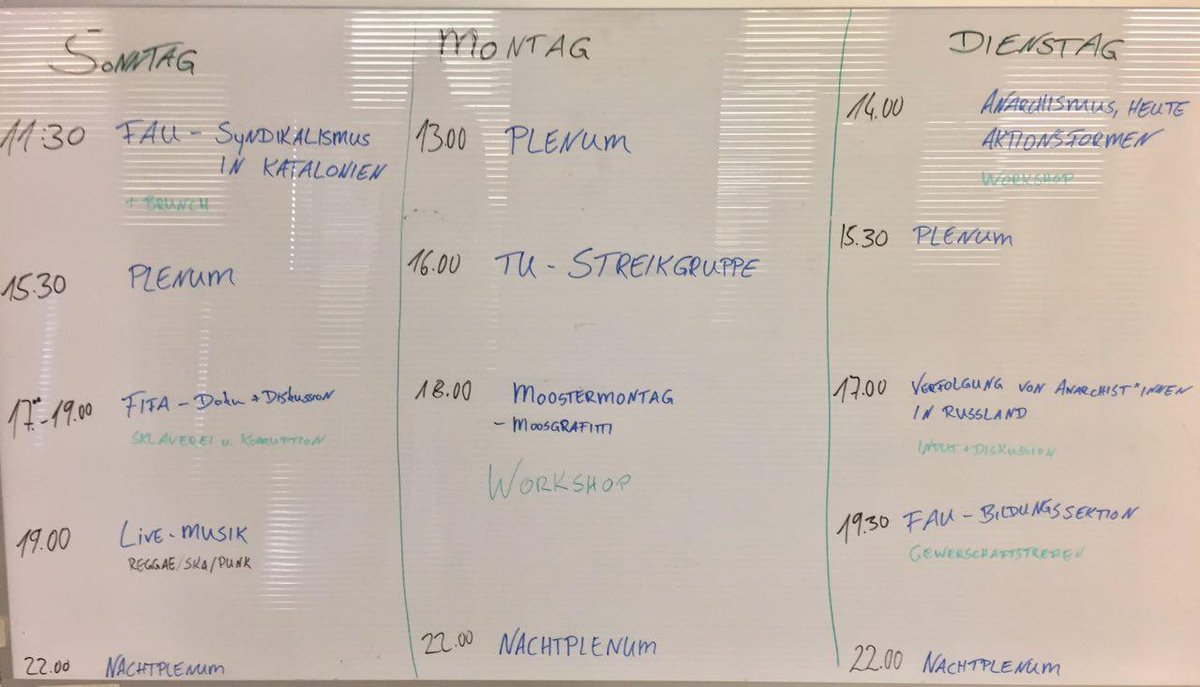 SONNTAG
11:30 FAU - SYNDIKALISMUS
IN KATALONIEN
+ BRUNCH
15.30 PLENUM
17°°-19.00 FIFA - Doku + Diskussion
SKLAVEREI u KORRUPTION
19.00 LIVE-MUSIK
REGGAE/SKA/PUNK
22.00 NACHTPLENUM
MONTAG
13.00 PLENUM
16.00 TU - STREIKGRUPPE
18.00 MOOSTERMONTAG
- MOOSGRAFITTI
WORKSHOP
22.00 NACHTPLENUM
DIENSTAG
14.00 ANARCHISMUS, HEUTE
AKTIONSFORMEN
WORKSHOP
15.30 PLENUM
17.00 VERFOLGUNG VON ANARCHIST*INNEN
IN RUSSLAND
INPUT + DISKUSSION
19.30 FAU - BILDUNGSSEKTION
GEWERSCHAFTSTREFFEN
22.00 NACHTPLENUM